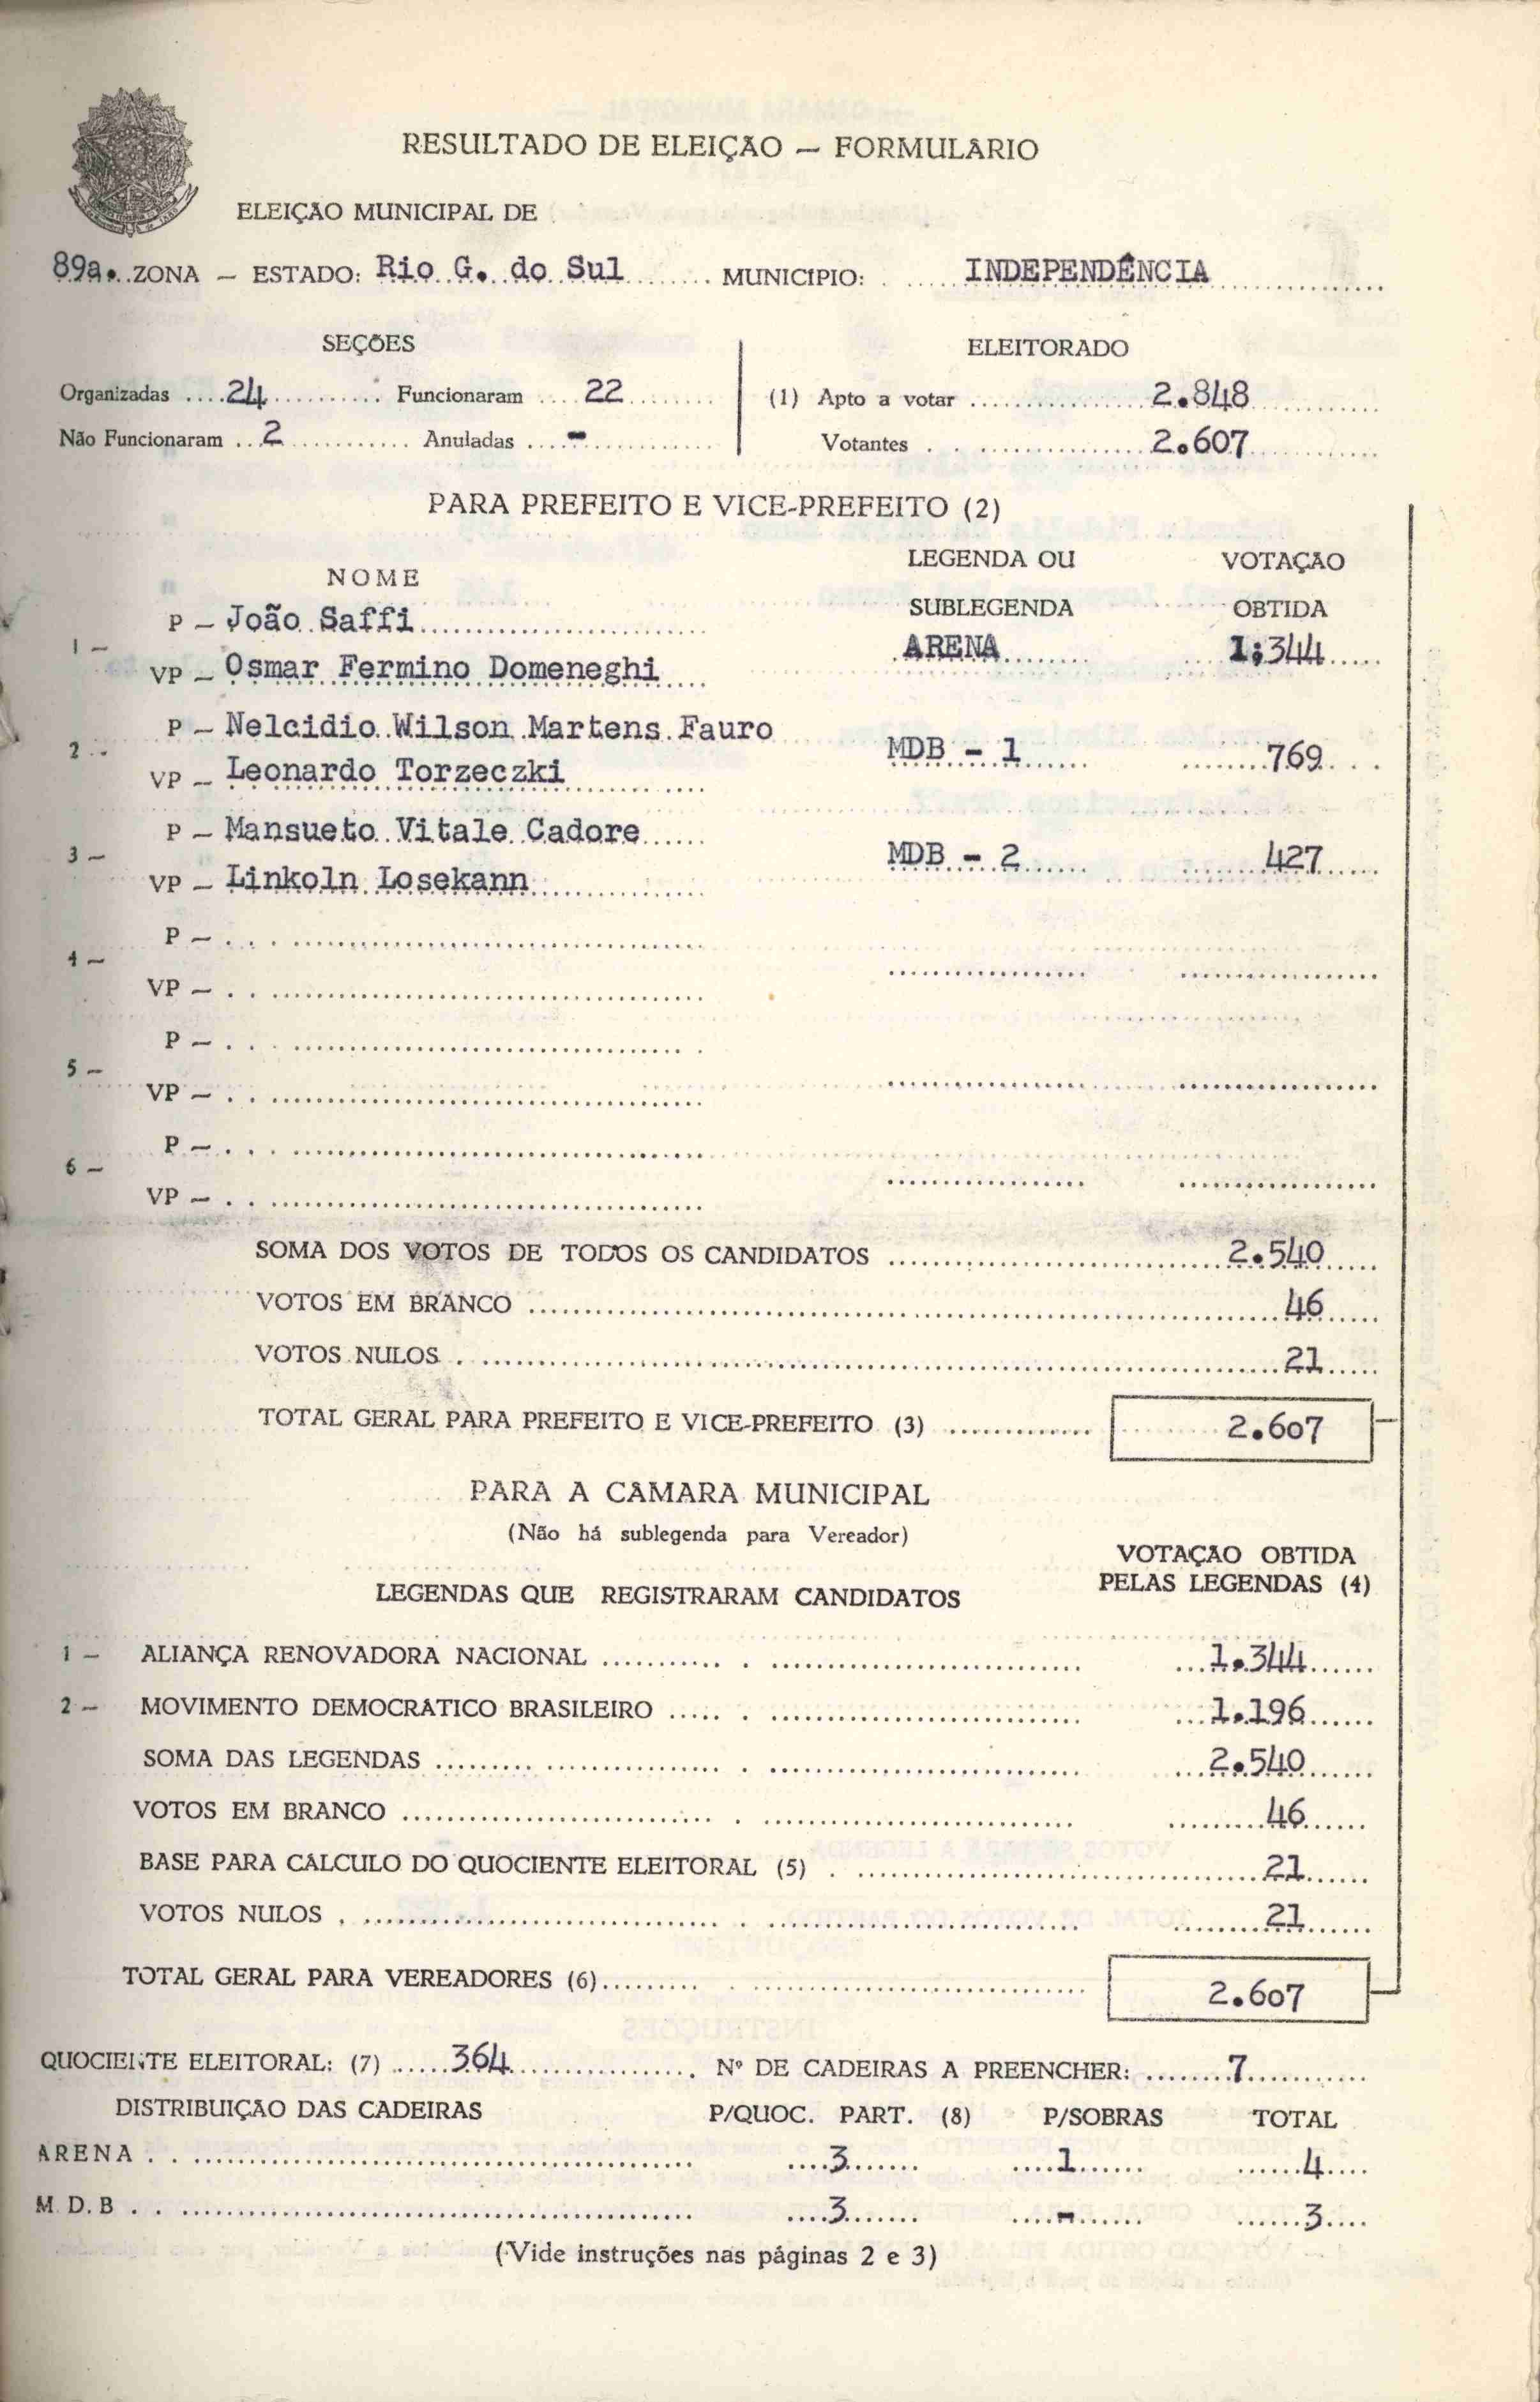 RESULTADO DE ELEIÇÃO — FORMULÁRIO
ELEIÇÃO MUNICIPAL DE
89a. ZONA — ESTADO: Rio G. do Sul MUNICIPIO: INDEPENDÊNCIA
SEÇÕES ELEITORADO
Organizadas 24 Funcionaram 22 (1) Apto a votar 2.848
Não Funcionaram 2 Anuladas - Votantes 2.607
PARA PREFEITO E VICE-PREFEITO (2)
NOME LEGENDA OU SUBLEGENDA VOTAÇÃO OBTIDA
1 — P — João Saffi
VP — Osmar Fermino Domeneghi ARENA 1;344
2 - P — Nelcidio Wilson Martens Fauro
VP — Leonardo Torzeczki MDB - 1 769
3 — P — Mansueto Vitale Cadore
VP — Linkoln Losekann MDB - 2 427
4 — P —
VP —
5 — P —
VP —
6 — P —
VP —
SOMA DOS VOTOS DE TODOS OS CANDIDATOS 2.540
VOTOS EM BRANCO 46
VOTOS NULOS 21
TOTAL GERAL PARA PREFEITO E VICE-PREFEITO (3) 2.607
PARA A CÂMARA MUNICIPAL
(Não há sublegenda para Vereador)
LEGENDAS QUE REGISTRARAM CANDIDATOS VOTAÇÃO OBTIDA PELAS LEGENDAS (4)
1 — ALIANÇA RENOVADORA NACIONAL 1.344
2 — MOVIMENTO DEMOCRÁTICO BRASILEIRO 1.196
SOMA DAS LEGENDAS 2.540
VOTOS EM BRANCO 46
BASE PARA CÁLCULO DO QUOCIENTE ELEITORAL (5) 21
VOTOS NULOS 21
TOTAL GERAL PARA VEREADORES (6) 2.607
QUOCIENTE ELEITORAL: (7) 364 Nº DE CADEIRAS A PREENCHER: 7
DISTRIBUIÇÃO DAS CADEIRAS P/QUOC. PART. (8) P/SOBRAS TOTAL
ARENA 3 1 4
M.D.B 3 - 3
(Vide instruções nas páginas 2 e 3)